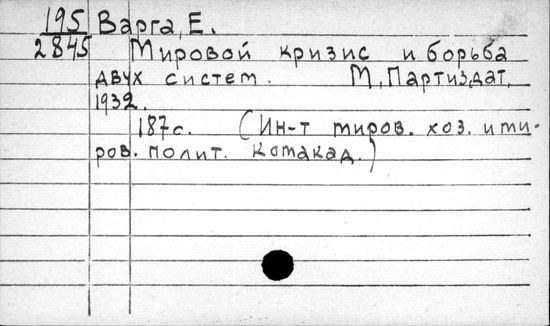 195 Варга, Е.
2845 Мировой кризис и борьба
двух систем. М, Партиздат,
1932.
187с. (Ин-т миров. хоз. и ми-
ров. полит. Комакад.)